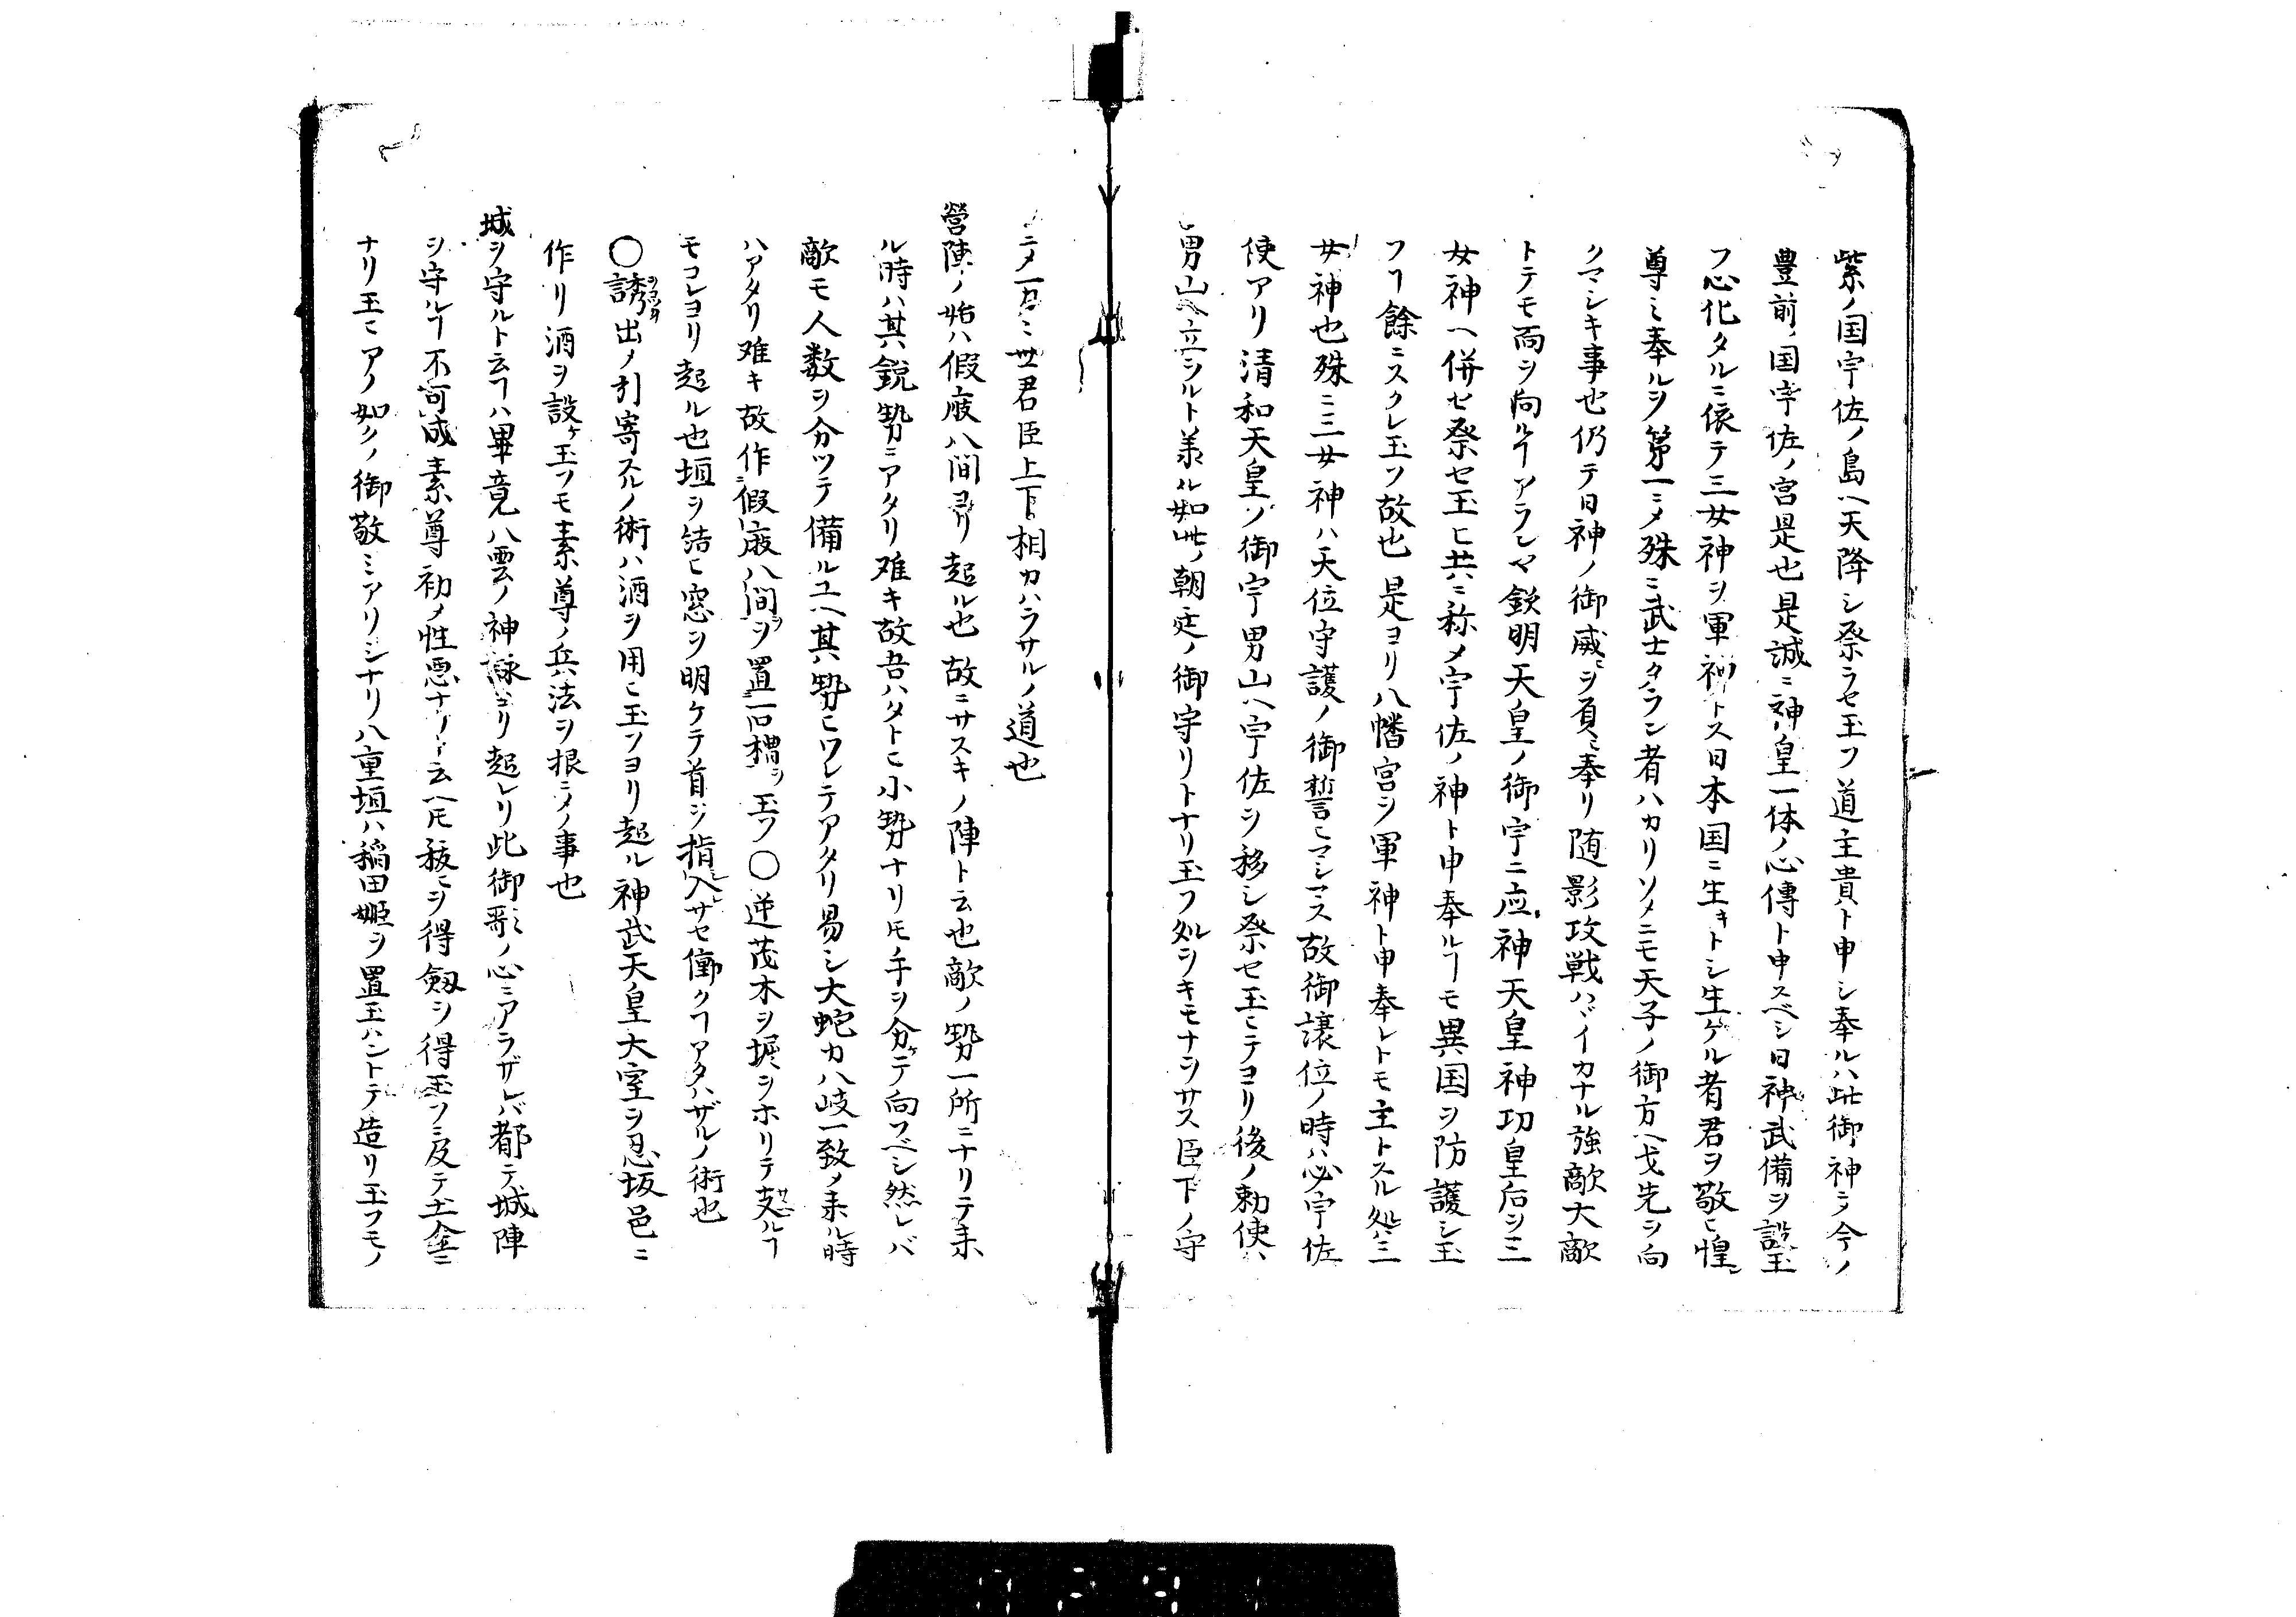 紫ノ国宇佐ノ島ヘ天降シ祭ラセ玉フ道主貴ト申シ奉ルハ此御神ニテ今ノ
豊前ノ国宇佐ノ宮是也是誠ニ神皇一体ノ心傳ト申スベシ日神武備ヲ設玉
フ心化タルニ依テ三女神ヲ軍神トス日本国ニ生キトシ生ケル者君ヲ敬ヒ惶
尊ミ奉ルヲ第一ニメ殊ニ武士タラン者ハカリソメニモ天子ノ御方ヘ戈先ヲ向
クマシキ事也仍テ日神ノ御威ヲ負ヒ奉リ随影攻戦ハヾイカナル強敵大敵
トテモ面ヲ向ルヿアランヤ欽明天皇ノ御宇ニ應神天皇神功皇后ヲ三
女神ヘ併セ祭セ玉ヒ共ニ称メ宇佐ノ神ト申奉ルヿモ異国ヲ防護シ玉
フヿ餘ニスクレ玉フ故也是ヨリ八幡宮ヲ軍神ト申奉レトモ主トスル処ハ三
女神也殊ニ三女神ハ天位守護ノ御誓ヒマシマス故御譲位ノ時ハ必宇佐
使アリ清和天皇ノ御宇男山ヘ宇佐ヲ移シ祭セ玉ヒテヨリ後ノ勅使ハ
男山ヘ立シルト羕ル如此ノ朝廷ノ御守リトナリ玉フ処ヲキモナンサス臣下ノ守
ニメ一句ニ世君臣上下相カハラサルノ道也
營陣ノ始ハ假庪八間ヨリ起ル也故ニサスキノ陣ト云也敵ノ勢一所ニナリテ来
ル時ハ其鋭勢ニアタリ难キ故吾ハタトヒ小勢ナリ𪜈手ヲ分ケテ向フベシ然レバ
敵モ人数ヲ分ツテ備ルユヘ其勢ヒワレテアタリ易シ大蛇カ八岐一致ノ来ル時
ハアタリ难キ故作假庪八間ヲ置一口槽ヲ玉フ〇逆茂木ヲ堀ヲホリテ支ルヿ
モコレヨリ起ル也垣ヲ結ヒ窓ヲ明ケテ首ヲ指入サセ働クヿアタハザルノ術也
〇誘出ノ引寄スルノ術ハ酒ヲ用ヒ玉フヨリ起ル神武天皇大室ヲ忍坂邑ニ
作リ酒ヲ設ケ玉フモ素尊ノ兵法ヲ根ニメノ事也
城ヲ守ルト云フハ畢竟八雲ノ神詠ヨリ起レリ此御歌ノ心ニアラザレバ都テ城陣
ヲ守ルヿ不可成素尊初メ性悪ナリト云ヘ𪜈秡ヲ得劔ヲ得玉フニ及テ土金ニ
ナリ玉ヒアノ如クノ御敬ミアリシナリ八重垣ハ稲田姫ヲ置玉ハントテ造リ玉フモノ